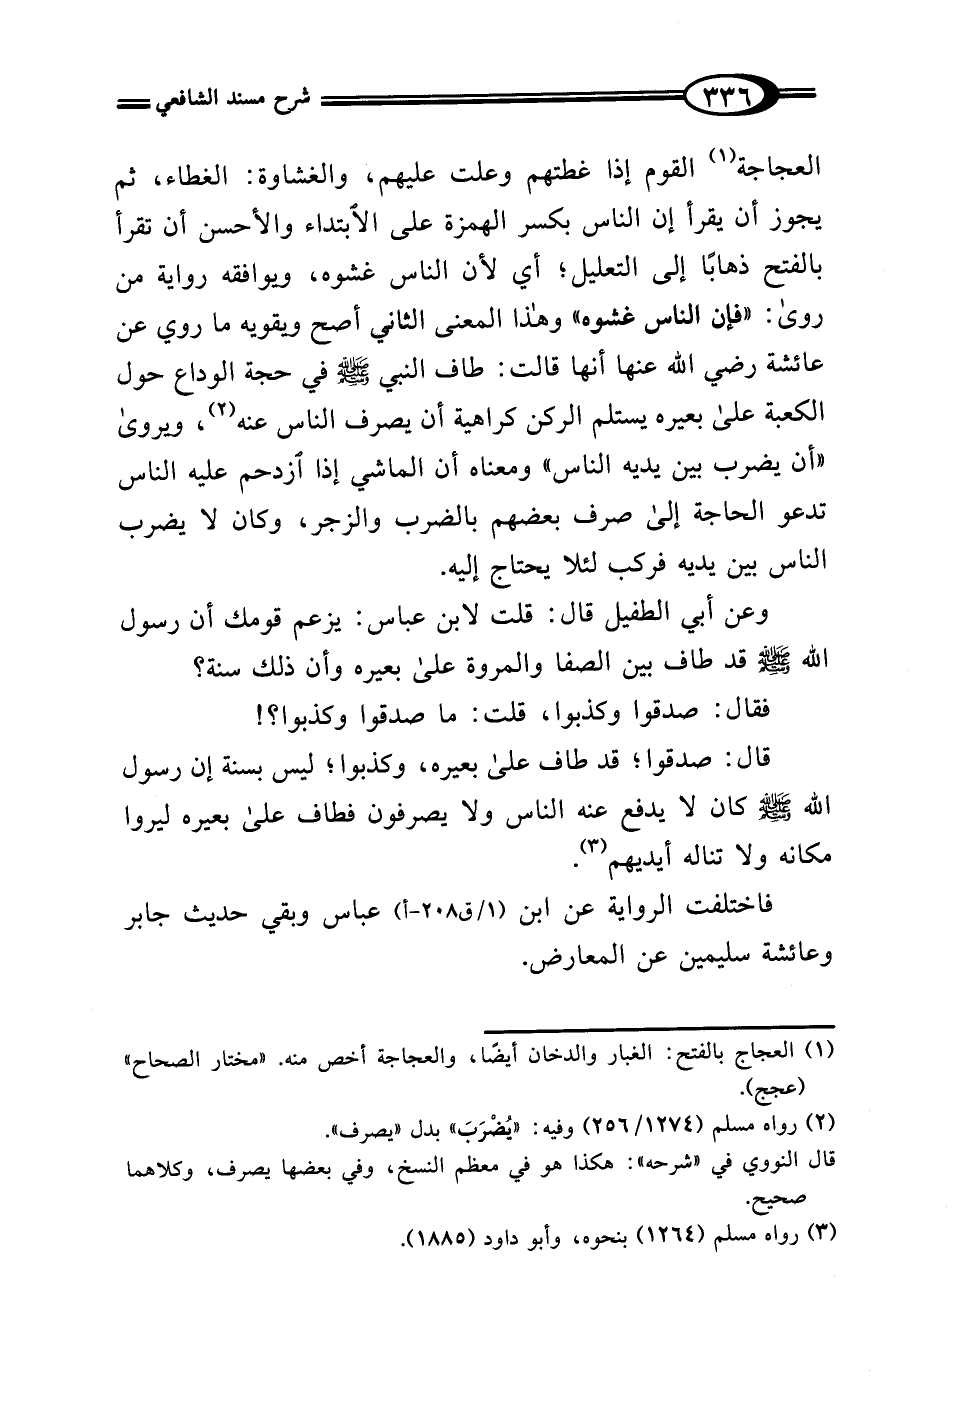 ٣٣٦ شرح مسند الشافعي
العجاجة(١) القوم إذا غطتهم وعلت عليهم، والغشاوة: الغطاء، ثم
يجوز أن يقرأ إن الناس بكسر الهمزة على الٱبتداء والأحسن أن تقرأ
بالفتح ذهابًا إلى التعليل؛ أي لأن الناس غشوه، ويوافقه رواية من
روىٰ: «فإن الناس غشوه» وهذا المعنى الثاني أصح ويقويه ما روي عن
عائشة رضي الله عنها أنها قالت: طاف النبي ﷺ في حجة الوداع حول
الكعبة علىٰ بعيره يستلم الركن كراهية أن يصرف الناس عنه(٢)، ويروىٰ
«أن يضرب بين يديه الناس» ومعناه أن الماشي إذا ٱزدحم عليه الناس
تدعو الحاجة إلىٰ صرف بعضهم بالضرب والزجر، وكان لا يضرب
الناس بين يديه فركب لئلا يحتاج إليه.
وعن أبي الطفيل قال: قلت لابن عباس: يزعم قومك أن رسول
الله ﷺ قد طاف بين الصفا والمروة علىٰ بعيره وأن ذلك سنة؟
فقال: صدقوا وكذبوا، قلت: ما صدقوا وكذبوا؟!
قال: صدقوا؛ قد طاف علىٰ بعيره، وكذبوا؛ ليس بسنة إن رسول
الله ﷺ كان لا يدفع عنه الناس ولا يصرفون فطاف علىٰ بعيره ليروا
مكانه ولا تناله أيديهم(٣).
فاختلفت الرواية عن ابن (١/ق٢٠٨-أ) عباس وبقي حديث جابر
وعائشة سليمين عن المعارض.
(١) العجاج بالفتح: الغبار والدخان أيضًا، والعجاجة أخص منه. «مختار الصحاح»
(عجج).
(٢) رواه مسلم (١٢٧٤/ ٢٥٦) وفيه: «يُضْرَبَ» بدل «يصرف».
قال النووي في «شرحه»: هكذا هو في معظم النسخ، وفي بعضها يصرف، وكلاهما
صحيح.
(٣) رواه مسلم (١٢٦٤) بنحوه، وأبو داود (١٨٨٥).